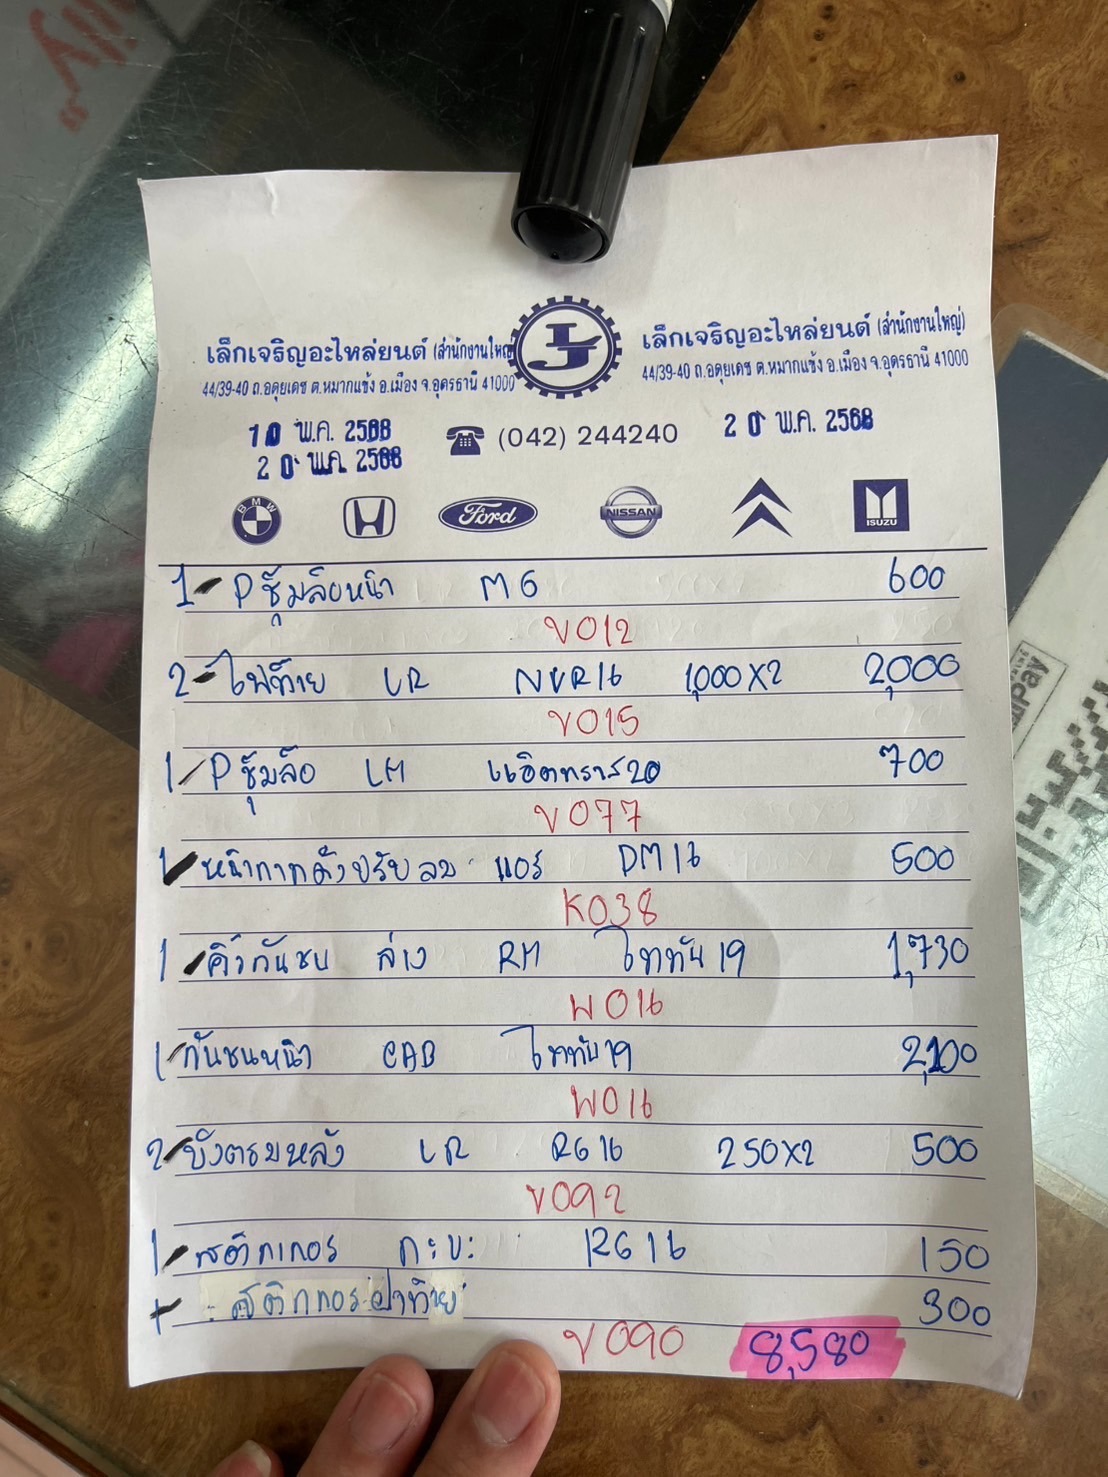 เล็กเจริญอะไหล่ยนต์ (สำนักงานใหญ่)
44/39-40 ถ.อดุยเดช ต.หมากแข้ง อ.เมือง จ.อุดรธานี 41000
LJ
เล็กเจริญอะไหล่ยนต์ (สำนักงานใหญ่)
44/39-40 ถ.อดุยเดช ต.หมากแข้ง อ.เมือง จ.อุดรธานี 41000
10 พ.ค. 2568
20 พ.ค. 2568
(042) 244240
20 พ.ค. 2568
BMW Ford NISSAN ISUZU
1 - Pซุ้มล้อหน้า MG 600
V012
2 - ไฟท้าย LR NVR16 1,000X2 2,000
V015
1 Pซุ้มล้อ LH แอ๊ตทราส20 700
V077
1 หน้ากากดังปรับลม แอร์ DM16 500
K038
1 คิ้วกันชน ล่าง RM ไททัน 19 1,730
W016
1 กันชนหน้า CAB ไททัน19 2,100
W016
2 บังตรมหลัง LR RG16 250X2 500
V092
1 สติกเกอร์ กะบะ RG16 150
สติกกอร์ ฝาท้าย 300
V090 8,580